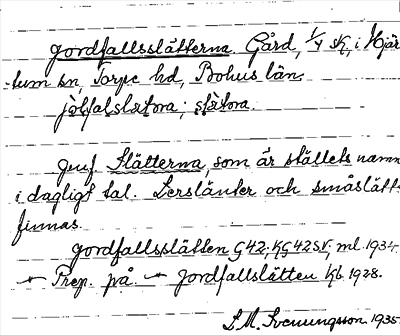 Jordfallsslätterna. Gård, 1/4 sk, i Hjär-
tum sn, Torpe hd, Bohus län.
jo̱lfalslætora; slætora.
Jmf. Slätterna, som är ställets namn
i dagligt tal. Lerslänter och småslätt
finnas.
Jordfallsslätten G42, KG42SV, ml. 1934.
Prep. på. Jordfallslätten Kb. 1928.
S. M. Svenungsson 1935